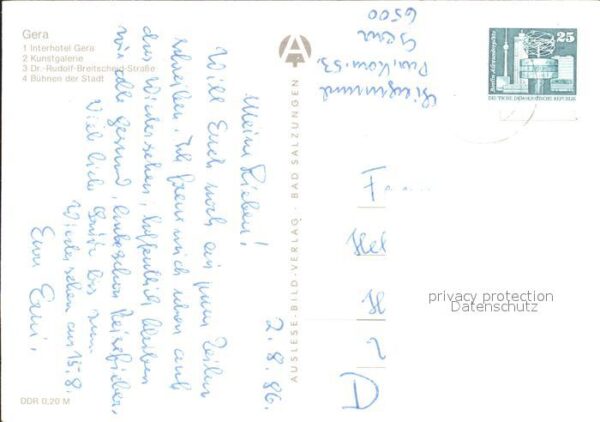 Gera
1 Interhotel Gera
2 Kunstgalerie
3 Dr.-Rudolf-Breitscheid-Straße
4 Bühnen der Stadt
2.8.86.
Meine Lieben!
Will Euch noch ein paar Zeilen
schreiben. Ich freue mich schon auf
das Wiedersehen, hoffentlich bleiben
wir alle gesund, habe schon Reisefieber.
Viele liebe Grüße bis zum
Wiedersehen am 15.8.
Eure Erni.
DDR 0,20 M
AUSLESE-BILD-VERLAG · BAD SALZUNGEN
53
Gera
6500
25
DEUTSCHE DEMOKRATISCHE REPUBLIK
F
Hel
H
D
privacy protection
Datenschutz